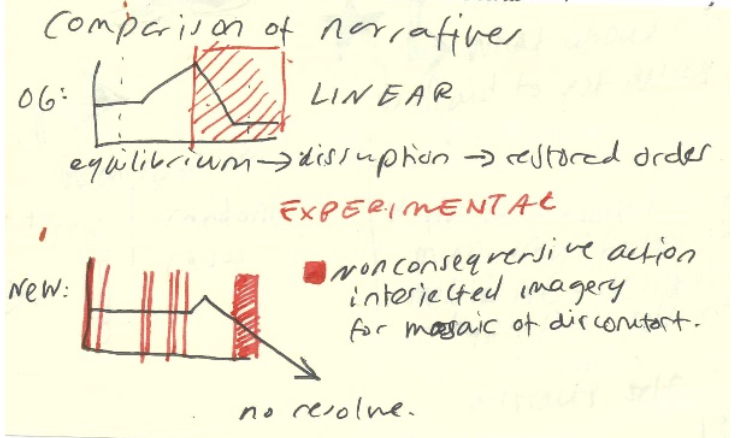 Comparison of narratives
OG:
LINEAR
equilibrium → disruption → restored order
EXPERIMENTAL
NEW:
nonconsequensive action
interjected imagery
for mosaic of discomfort.
no resolve.